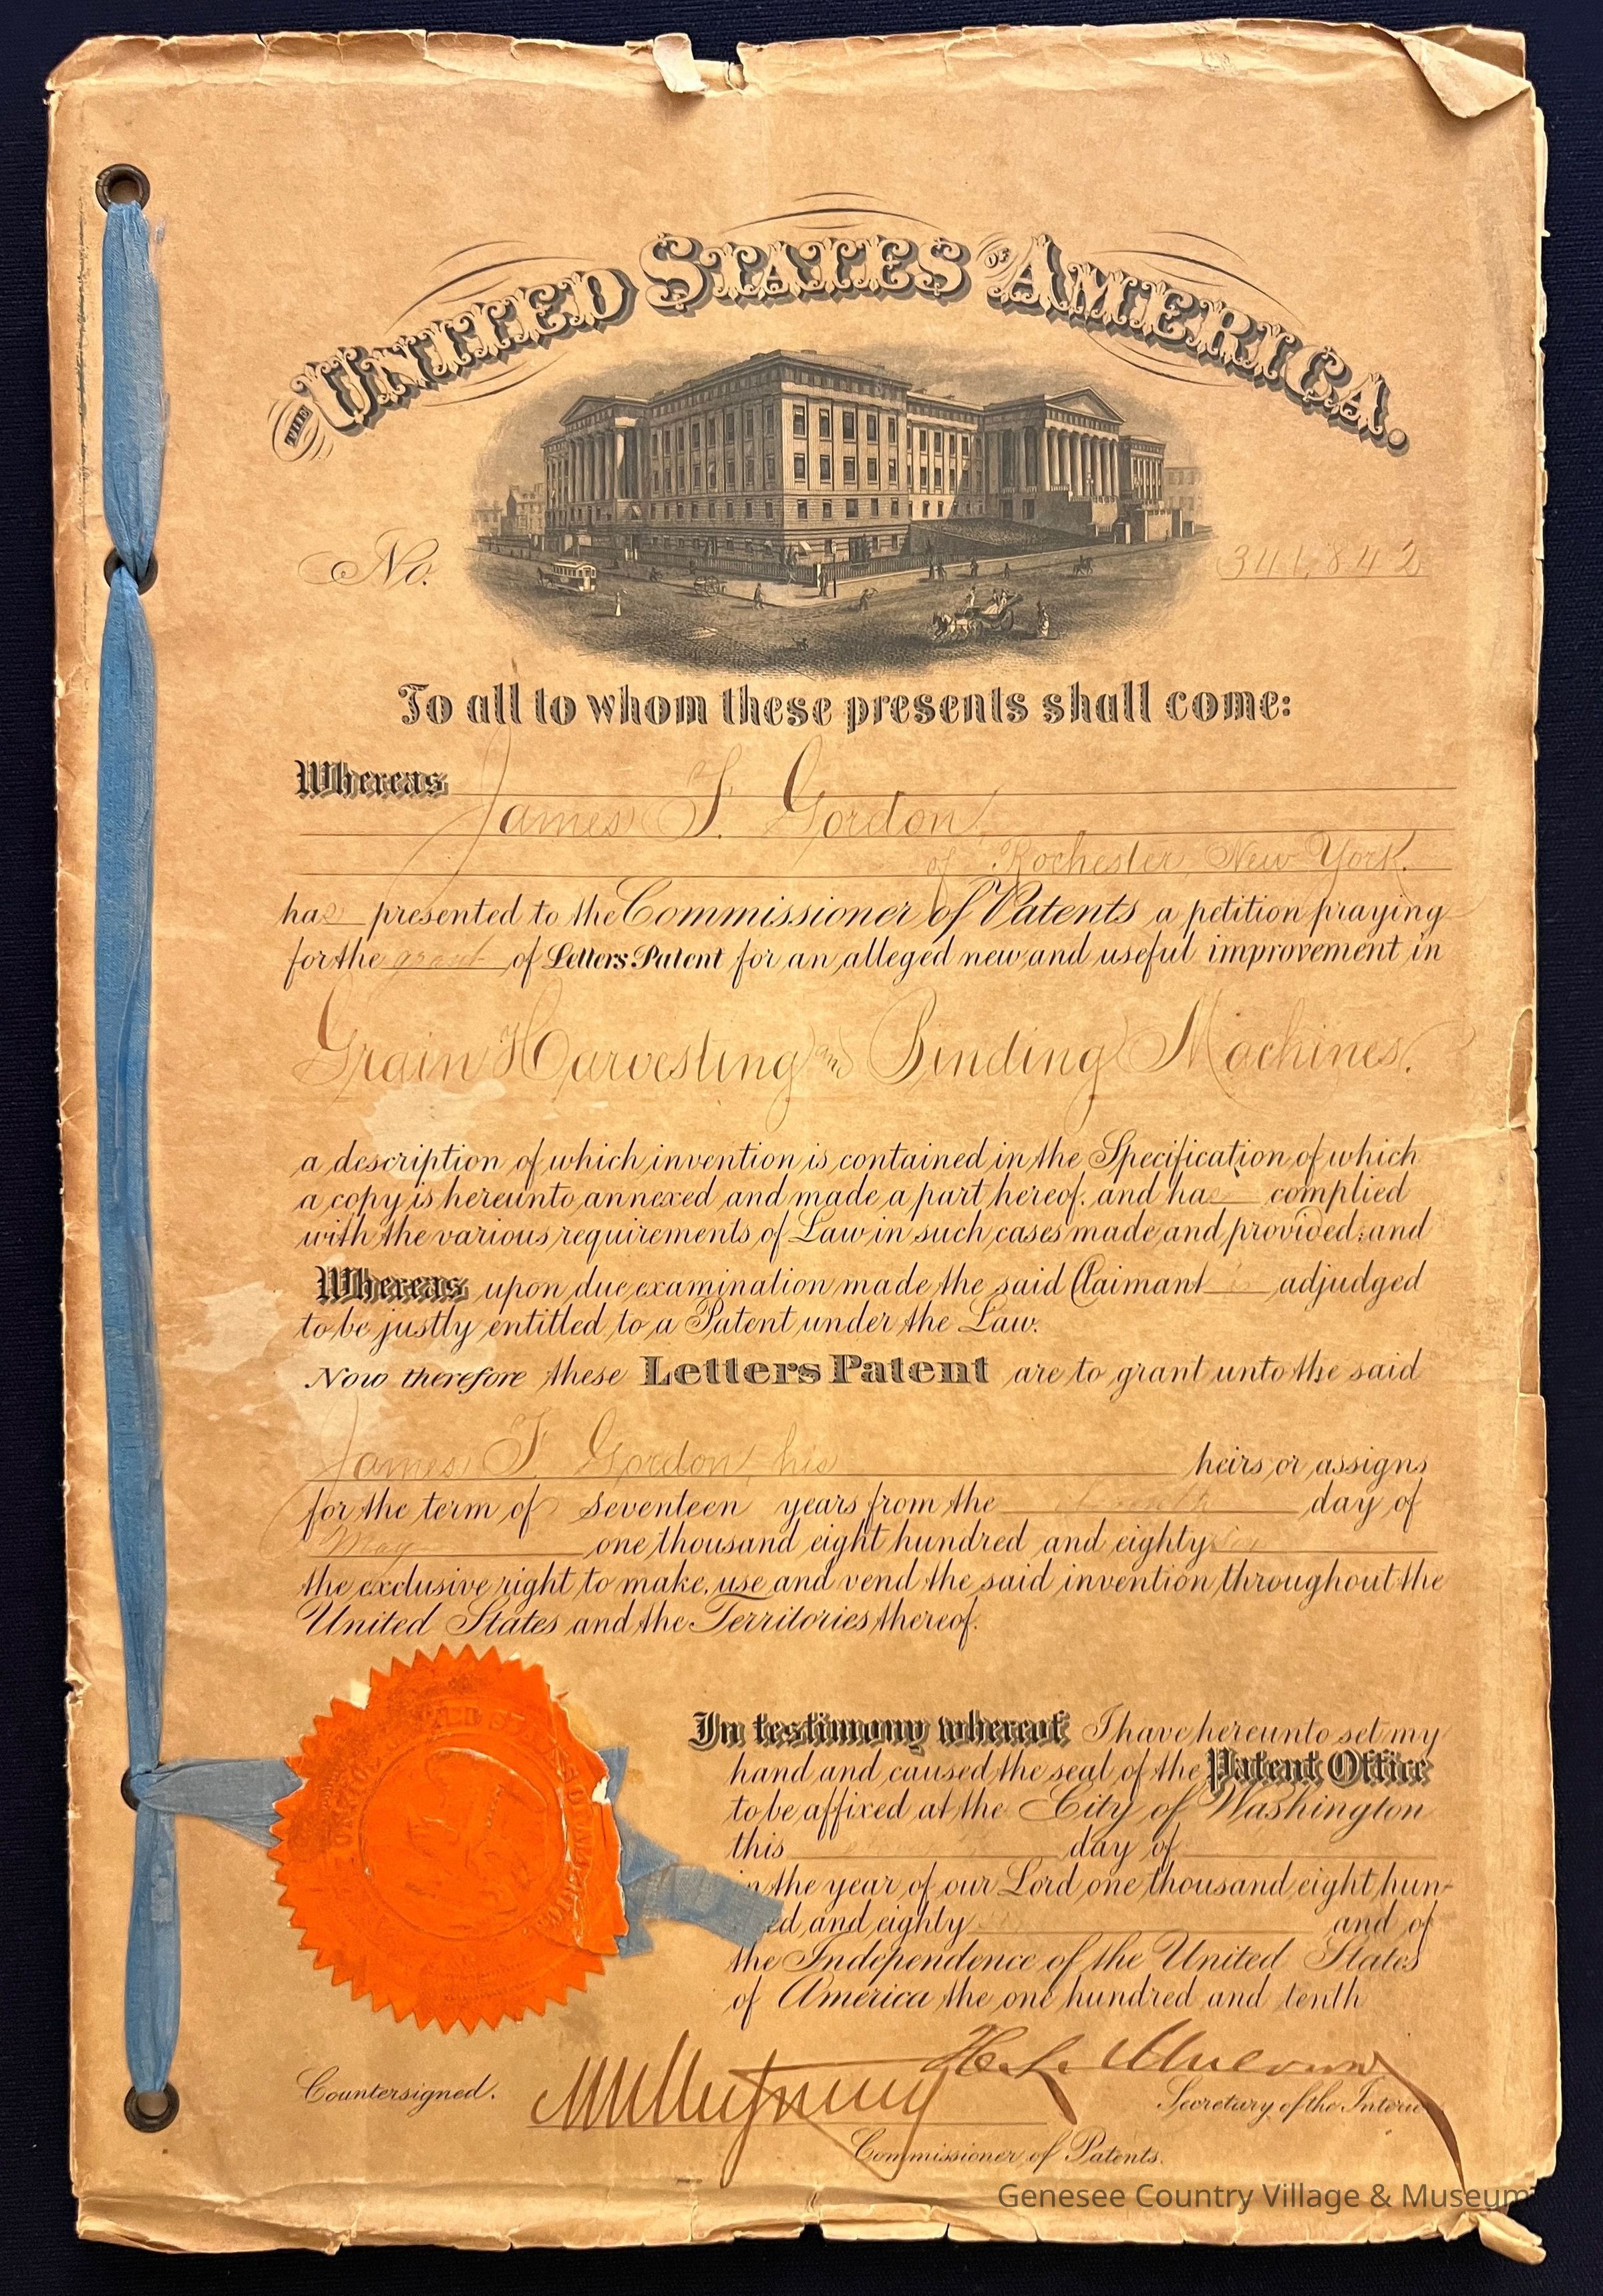 THE UNITED STATES OF AMERICA.
No. 341,842
To all to whom these presents shall come:
Whereas
James F. Gordon
of Rochester, New York.
has presented to the Commissioner of Patents a petition praying
for the grant of Letters Patent for an alleged new and useful improvement in
Grain Harvesting and Binding Machines.
a description of which invention is contained in the Specification of which
a copy is hereunto annexed and made a part hereof, and has complied
with the various requirements of Law in such cases made and provided; and
Whereas upon due examination made the said Claimant is adjudged
to be justly entitled to a Patent under the Law.
Now therefore these Letters Patent are to grant unto the said
James F. Gordon, his heirs or assigns
for the term of seventeen years from the day of
May one thousand eight hundred and eighty six
the exclusive right to make, use and vend the said invention throughout the
United States and the Territories thereof.
In testimony whereof I have hereunto set my
hand and caused the seal of the Patent Office
to be affixed at the City of Washington
this day of
in the year of our Lord one thousand eight hun-
ed and eighty and of
the Independence of the United States
of America the one hundred and tenth
Countersigned.
Secretary of the Interior
Commissioner of Patents.
Genesee Country Village & Museum